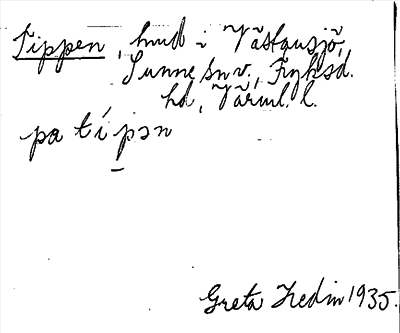 Tippen, hmd i Västansjö,
Sunne snv., Fryksd.
hd, Värml. l.
pa típɔn
Greta Hedin 1935.